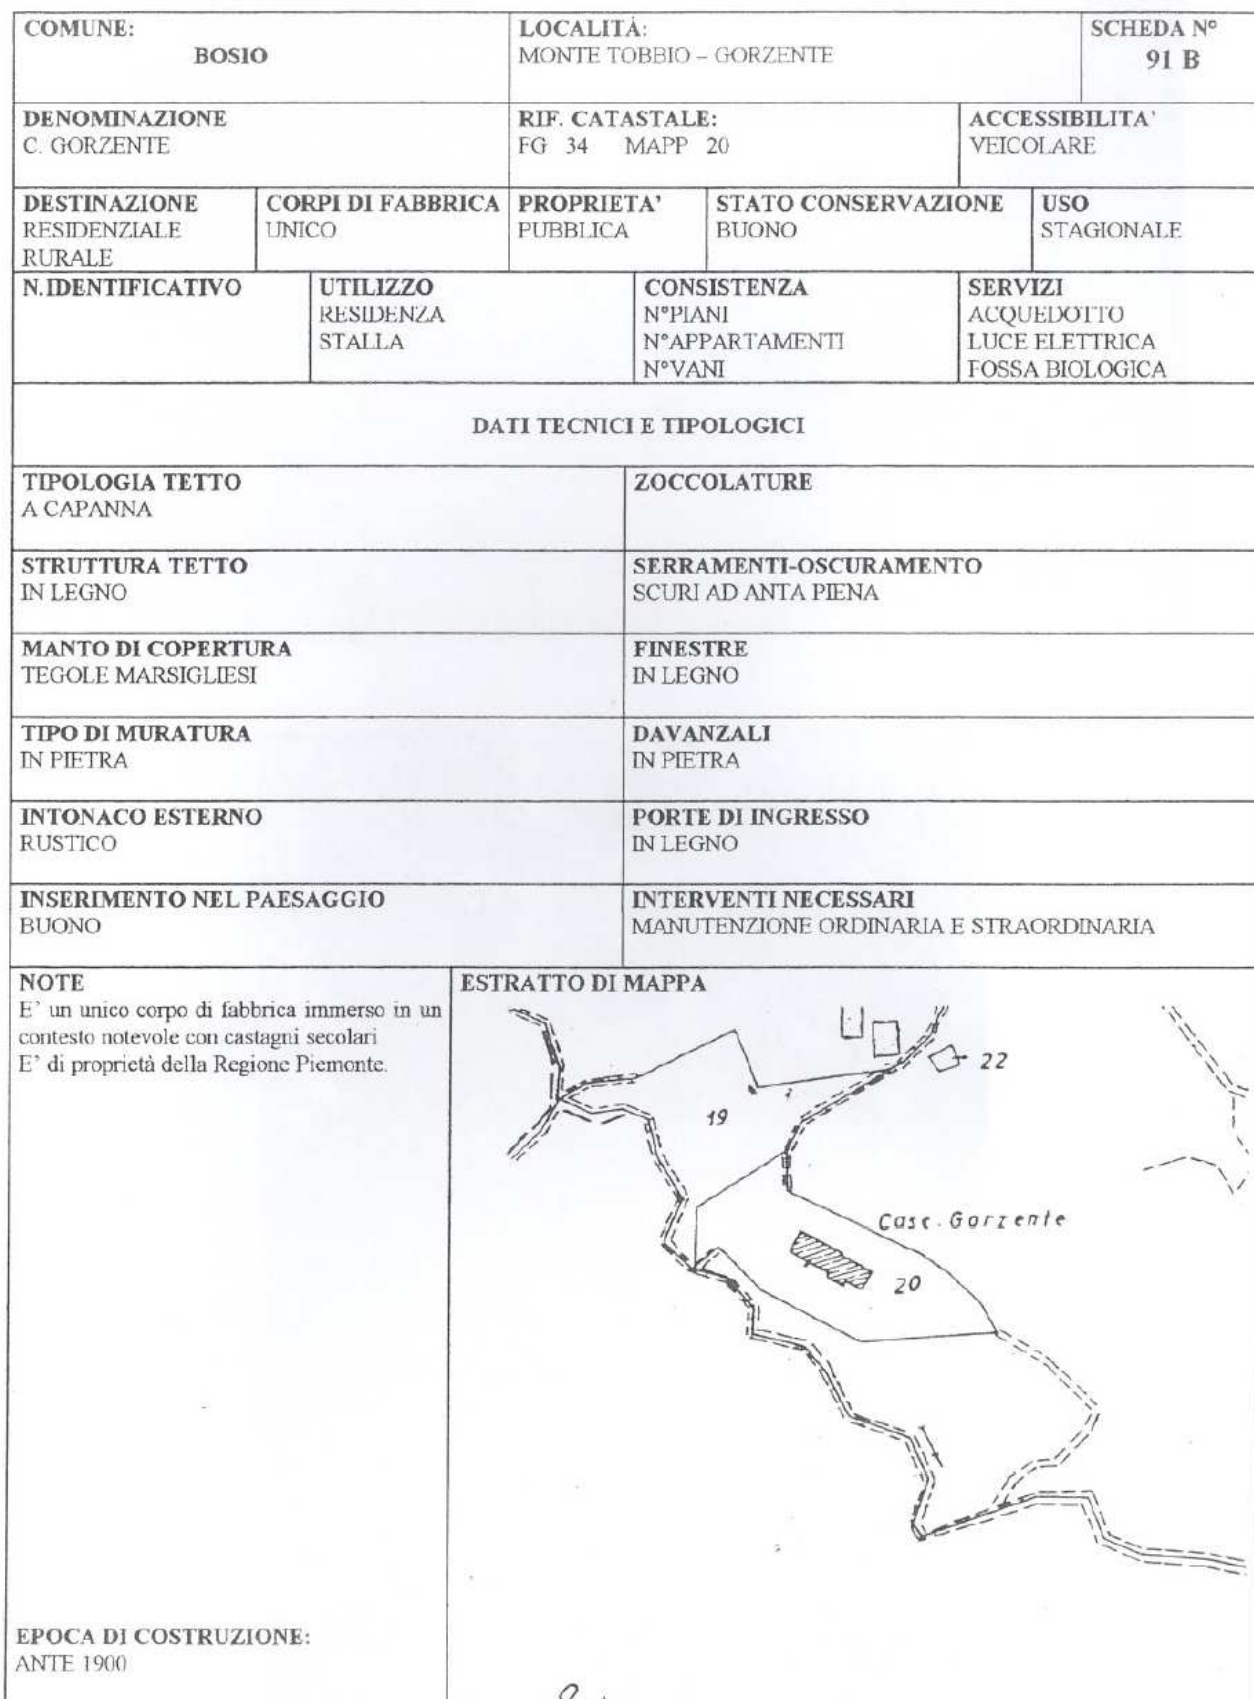 COMUNE:
BOSIO
LOCALITÀ:
MONTE TOBBIO – GORZENTE
SCHEDA N°
91 B
DENOMINAZIONE
C. GORZENTE
RIF. CATASTALE:
FG 34 MAPP 20
ACCESSIBILITA'
VEICOLARE
DESTINAZIONE
RESIDENZIALE
RURALE
CORPI DI FABBRICA
UNICO
PROPRIETA'
PUBBLICA
STATO CONSERVAZIONE
BUONO
USO
STAGIONALE
N.IDENTIFICATIVO
UTILIZZO
RESIDENZA
STALLA
CONSISTENZA
N°PIANI
N°APPARTAMENTI
N°VANI
SERVIZI
ACQUEDOTTO
LUCE ELETTRICA
FOSSA BIOLOGICA
DATI TECNICI E TIPOLOGICI
TIPOLOGIA TETTO
A CAPANNA
ZOCCOLATURE
STRUTTURA TETTO
IN LEGNO
SERRAMENTI-OSCURAMENTO
SCURI AD ANTA PIENA
MANTO DI COPERTURA
TEGOLE MARSIGLIESI
FINESTRE
IN LEGNO
TIPO DI MURATURA
IN PIETRA
DAVANZALI
IN PIETRA
INTONACO ESTERNO
RUSTICO
PORTE DI INGRESSO
IN LEGNO
INSERIMENTO NEL PAESAGGIO
BUONO
INTERVENTI NECESSARI
MANUTENZIONE ORDINARIA E STRAORDINARIA
NOTE
E' un unico corpo di fabbrica immerso in un
contesto notevole con castagni secolari
E' di proprietà della Regione Piemonte.
ESTRATTO DI MAPPA
22
19
Casc. Gorzente
20
EPOCA DI COSTRUZIONE:
ANTE 1900